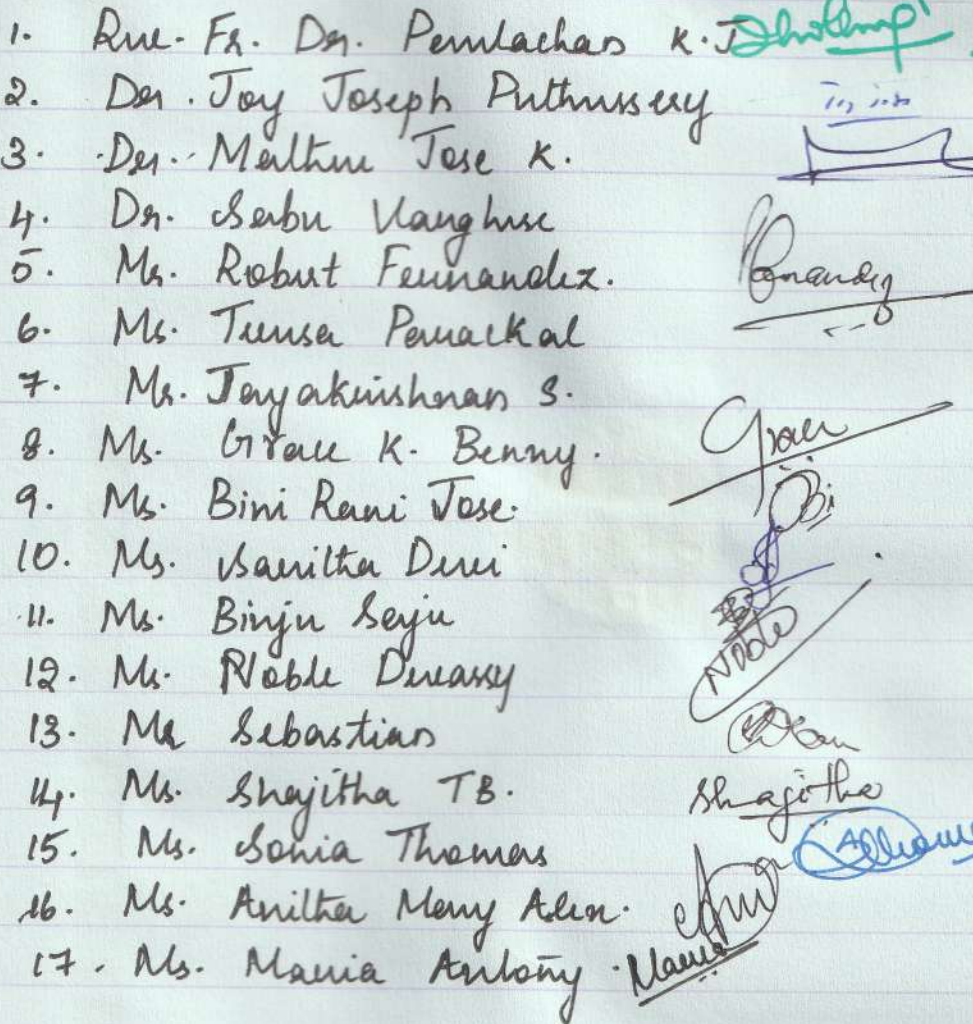 1. Rev. Fr. Dr. Paulachan K.J
2. Dr. Joy Joseph Puthussery
3. Dr. Malthu Jose K.
4. Dr. Sabu Varghise
5. Mr. Robert Fernandez. Fernandez
6. Ms. Teresa Peruackal
7. Mr. Jayakrishnan S.
8. Ms. Grace K. Benny. Grace
9. Ms. Bini Rani Jose. Bi
10. Ms. Savitha Devi
11. Ms. Binju Saju
12. Ms. Noble Devassy Noble
13. Mr Sebastian
14. Ms. Shajitha TB. Shajitha
15. Ms. Sonia Thomas
16. Ms. Anitha Mary Alex.
17. Ms. Maria Antony. Maria